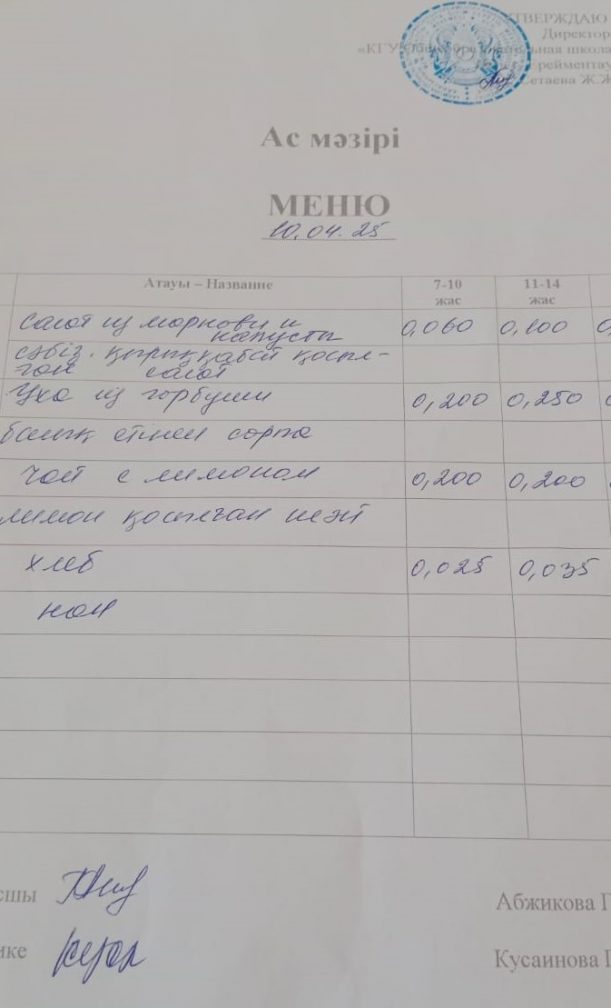 ТВЕРЖДАЮ
Директор
«КГУ ьная школа
рейментау
Сетаева Ж.Ж
Ас мәзірі
МЕНЮ
10.04.25
Атауы – Название 7-10 жас 11-14 жас
Салат из моркови и 0,060 0,100 0,
капусты
сәбіз. қырыққабат қосыл-
ған салат
Уха из горбуши 0,200 0,250
балық етінен сорпа
Чай с лимоном 0,200 0,200
лимон қосылған шәй
хлеб 0,025 0,035
нан
сшы Абжикова Г
ике Кусаинова Г